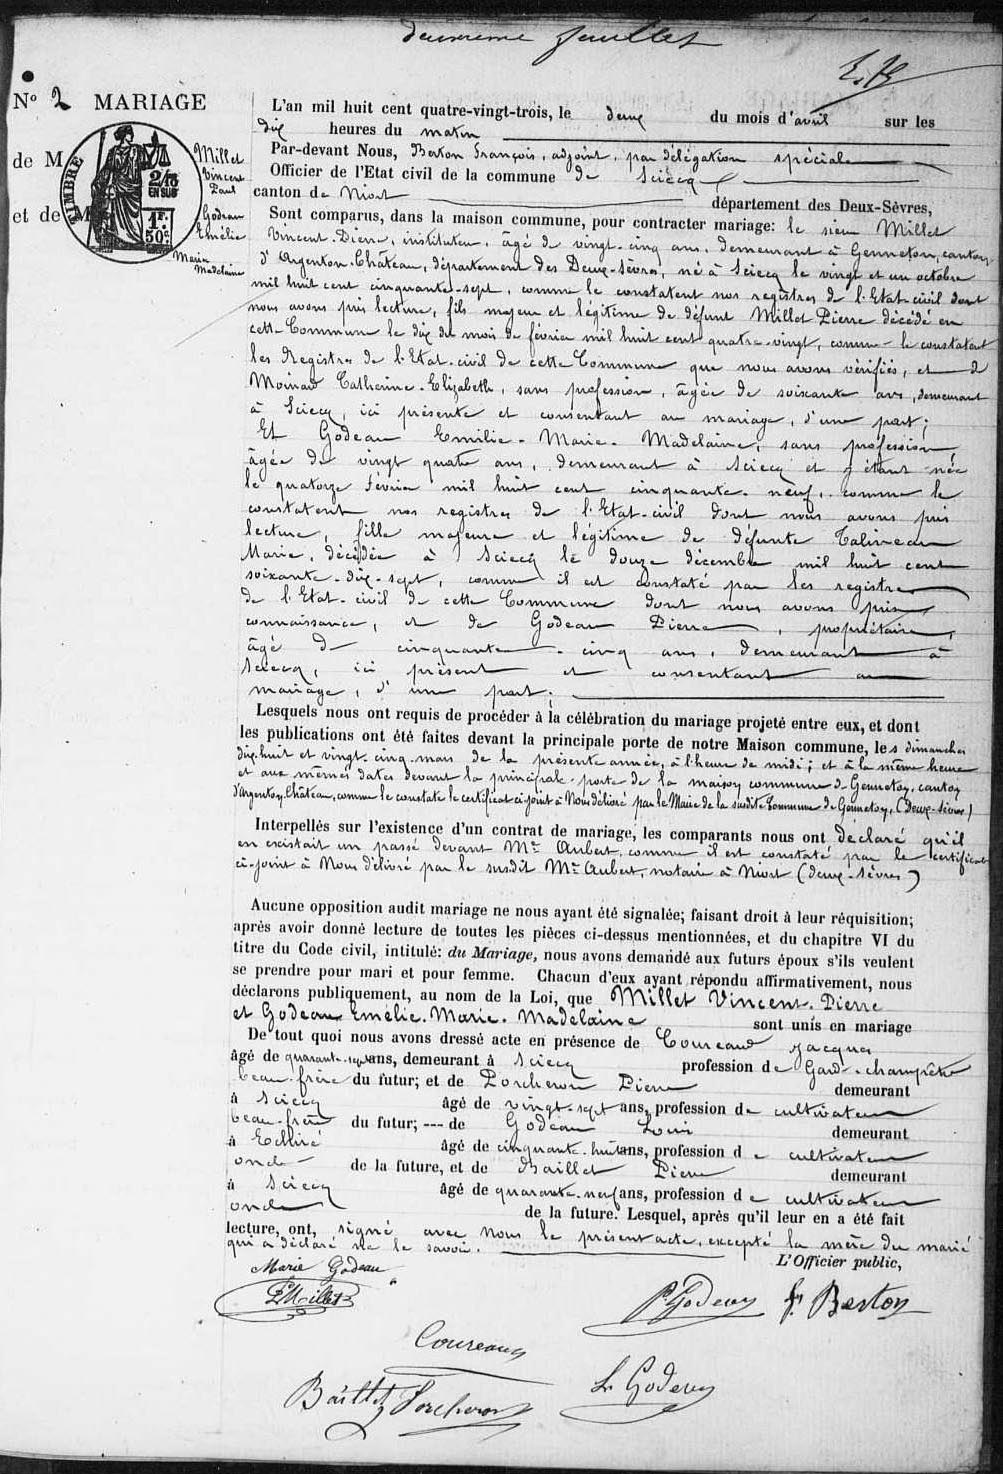 deuxième feuillet
Nº 2 MARIAGE
de M
Millet
Vincent
Paul
et de M
Godeau
Emélie
Marie
Madelaine
TIMBRE
2/10
EN SUS
1F.
50c.
L'an mil huit cent quatre-vingt-trois, le deux du mois d'avril sur les
dix heures du matin
Par-devant Nous, Berton François, adjoint, par délégation spéciale
Officier de l'Etat civil de la commune de Sciecq
canton de Niort département des Deux-Sèvres,
Sont comparus, dans la maison commune, pour contracter mariage: le sieur Millet
Vincent-Pierre, instituteur, âgé de vingt-cinq ans, demeurant à Genneton, canton
d'Argenton-Château, département des Deux-Sèvres, né à Sciecq le vingt et un octobre
mil huit cent cinquante-sept, comme le constatent nos registres de l'Etat-civil dont
nous avons pris lecture, fils majeur et légitime de défunt Millet Pierre décédé en
cette Commune le dix du mois de février mil huit cent quatre-vingt, comme le constatent
les Registres de l'Etat-civil de cette Commune que nous avons vérifiés, et de
Moinard Catherine-Elizabeth, sans profession, âgée de soixante ans, demeurant
à Sciecq, ici présente et consentant au mariage, d'une part;
Et Godeau Emilie-Marie-Madelaine, sans profession,
âgée de vingt quatre ans, demeurant à Sciecq et y étant née
le quatorze février mil huit cent cinquante-neuf, comme le
constatent nos registres de l'Etat-civil dont nous avons pris
lecture, fille majeure et légitime de défunte Talineau
Marie, décédée à Sciecq le douze décembre mil huit cent
soixante-dix-sept, comme il est constaté par les registres
de l'Etat-civil de cette Commune dont nous avons pris
connaissance, et de Godeau Pierre, propriétaire,
âgé de cinquante-cinq ans, demeurant à
Sciecq, ici présent et consentant au
mariage, d'une part.
Lesquels nous ont requis de procéder à la célébration du mariage projeté entre eux, et dont
les publications ont été faites devant la principale porte de notre Maison commune, les dimanches
dix-huit et vingt-cinq mars de la présente année, à l'heure de midi; et à la même heure
et aux mêmes dates devant la principale porte de la maison commune de Genneton, canton
d'Argenton-Château, comme le constate le certificat ci-joint à Nous délivré par le Maire de la susdite Commune de Genneton, (Deux-Sèvres)
Interpellés sur l'existence d'un contrat de mariage, les comparants nous ont declaré qu'il
en existait un passé devant Me Aubert, comme il est constaté par le certificat
ci-joint à Nous délivré par le susdit Me Aubert, notaire à Niort (deux-Sèvres)
Aucune opposition audit mariage ne nous ayant été signalée; faisant droit à leur réquisition;
après avoir donné lecture de toutes les pièces ci-dessus mentionnées, et du chapitre VI du
titre du Code civil, intitulé: du Mariage, nous avons demandé aux futurs époux s'ils veulent
se prendre pour mari et pour femme. Chacun d'eux ayant répondu affirmativement, nous
déclarons publiquement, au nom de la Loi, que Millet Vincent-Pierre
et Godeau Emélie-Marie-Madelaine sont unis en mariage
De tout quoi nous avons dressé acte en présence de Coureaud Jacques
âgé de quarante-sept ans, demeurant à Sciecq profession de Gard-champêtre
beau-frère du futur; et de Porcheron Pierre demeurant
à Sciecq âgé de vingt-sept ans, profession de cultivateur
beau-frère du futur; --- de Godeau Louis demeurant
à Echiré âgé de cinquante-huit ans, profession de cultivateur
oncle de la future, et de Baillet Pierre demeurant
à Sciecq âgé de quarante-neuf ans, profession de cultivateur
oncle de la future. Lesquel, après qu'il leur en a été fait
lecture, ont, signé avec nous le présent acte, excepté la mère du marié
qui a déclaré ne le savoir.
L'Officier public,
Marie Godeau
Millet
P. Godeau F. Berton
Coureaud
L. Godeau
Baillet Porcheron